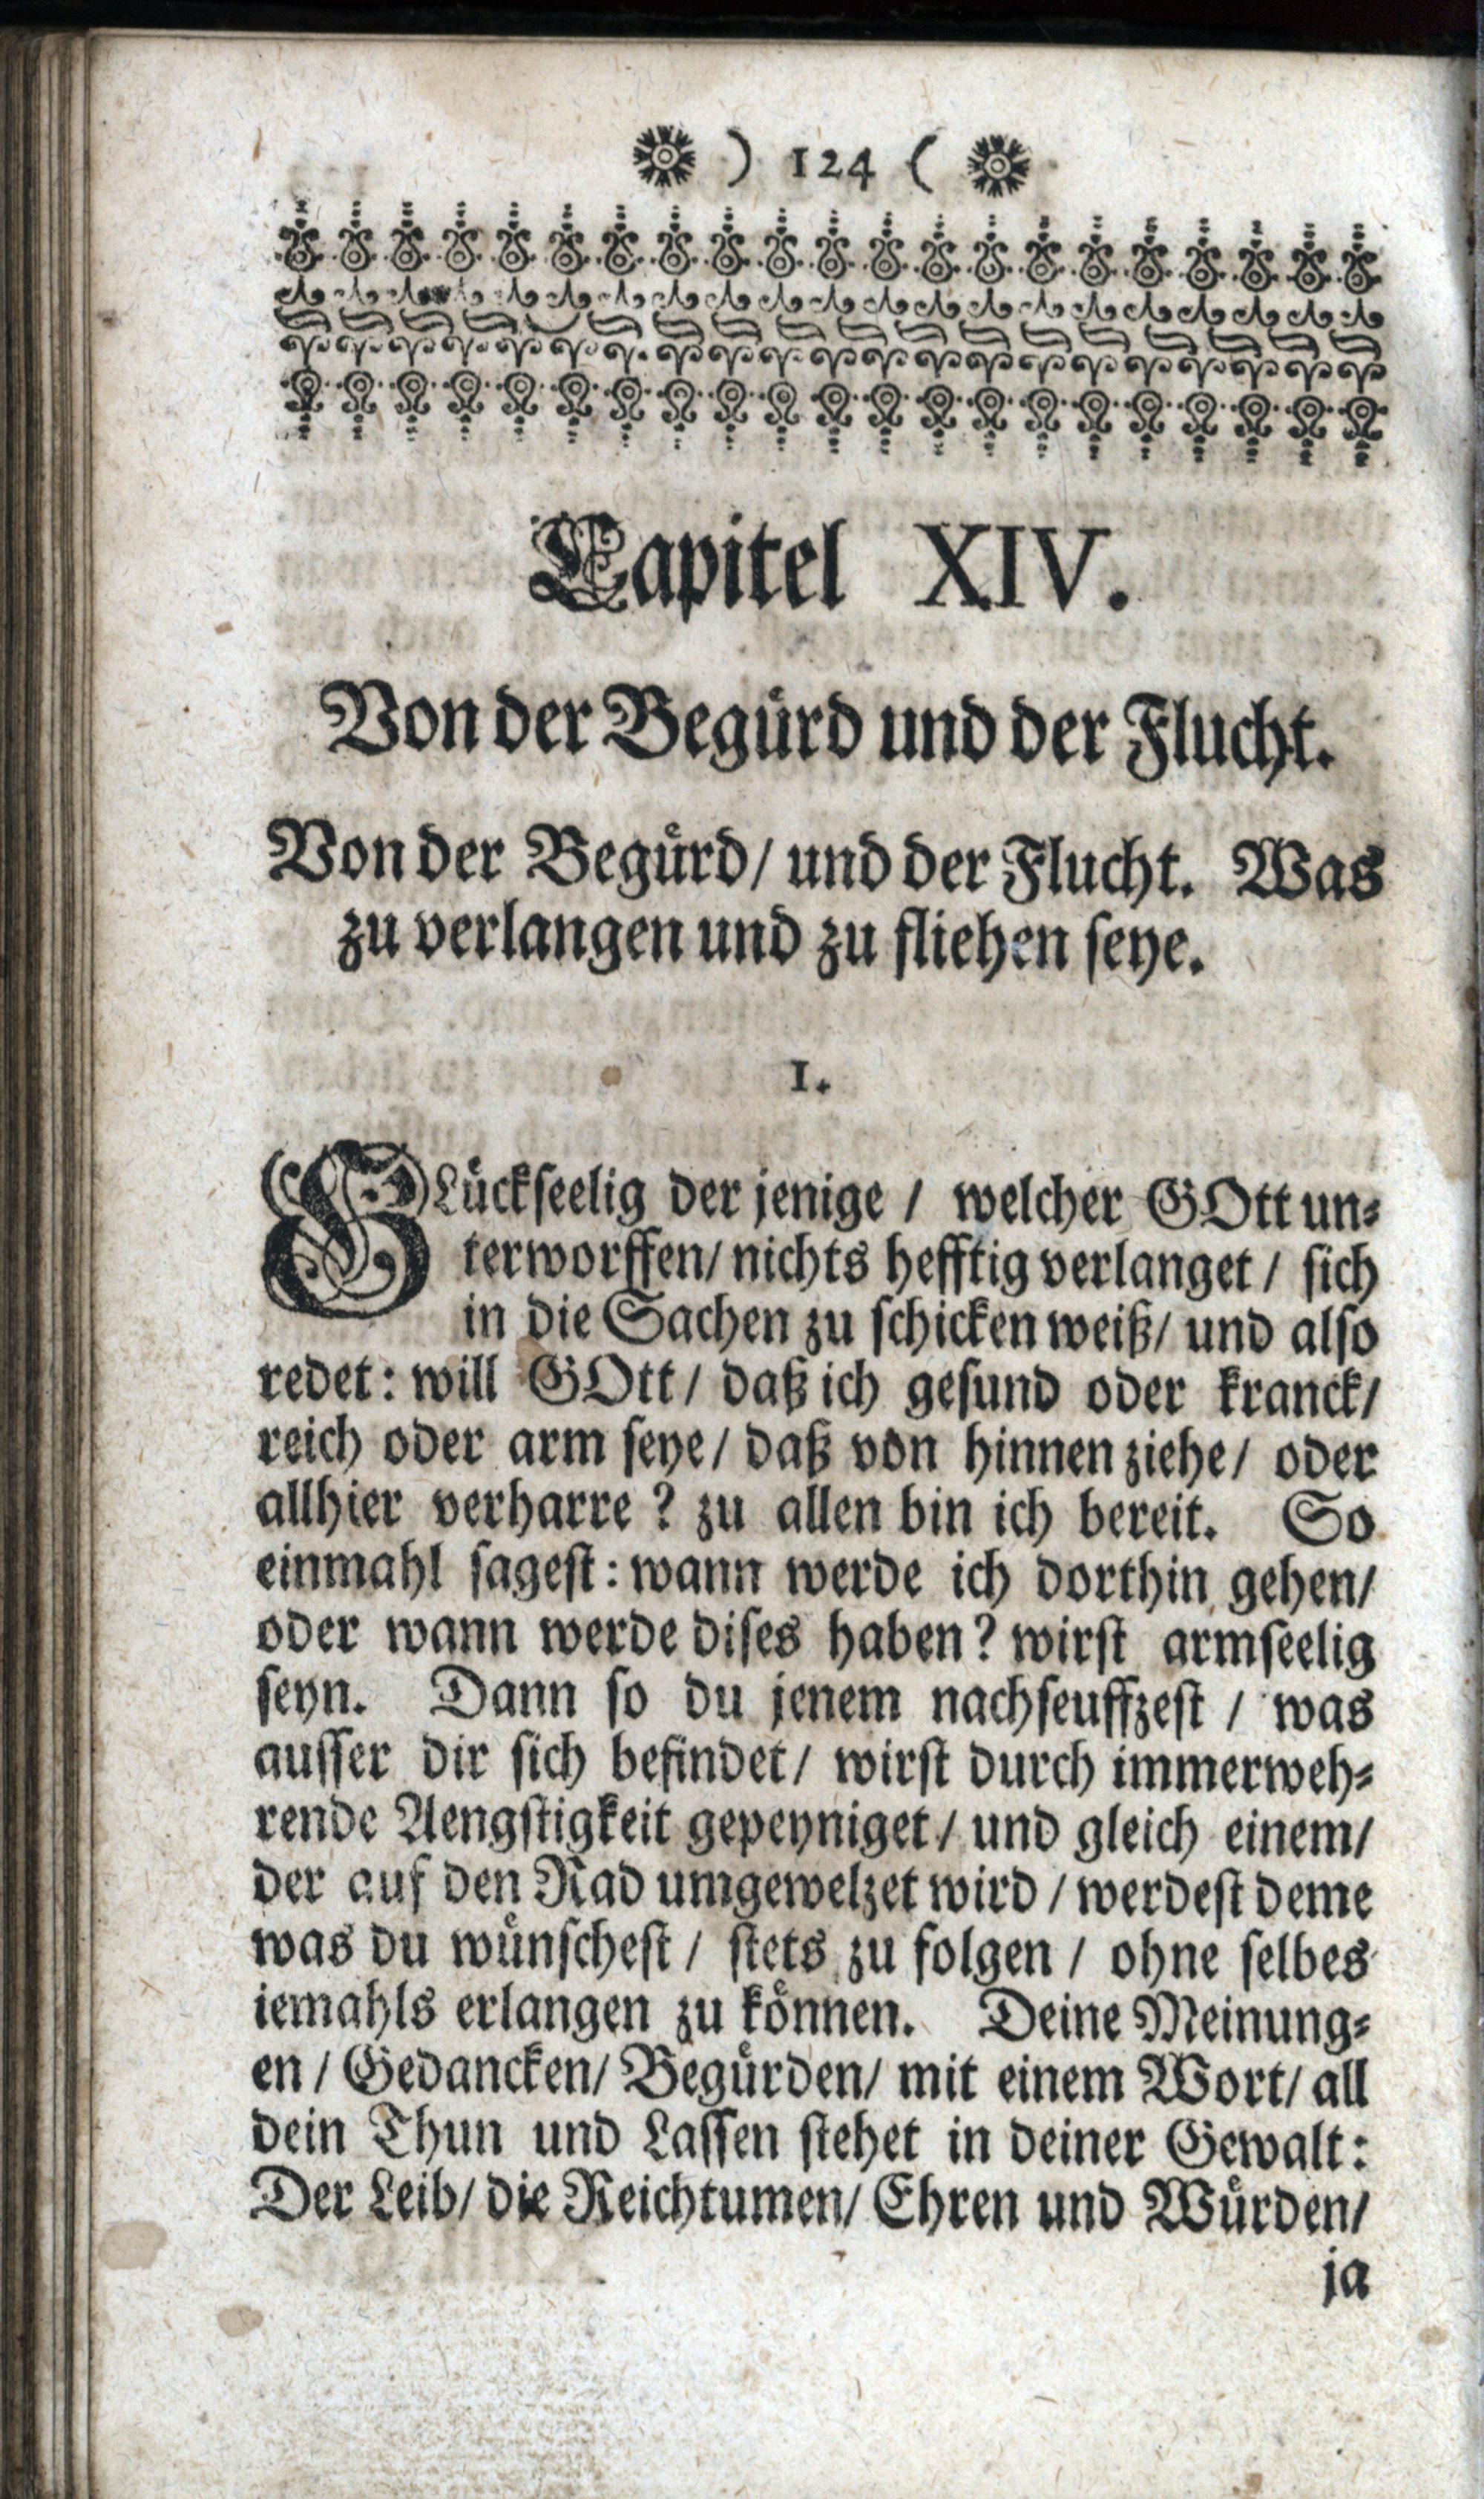 ) 124 (
Capitel XIV.
Von der Begürd und der Flucht.
Von der Begürd/ und der Flucht. Was
zu verlangen und zu fliehen seye.
1.
GLückseelig der jenige / welcher GOtt un-
terworffen/ nichts hefftig verlanget / sich
in die Sachen zu schicken weiß/ und also
redet: will GOtt / daß ich gesund oder kranck/
reich oder arm seye / daß von hinnen ziehe/ oder
allhier verharre ? zu allen bin ich bereit. So
einmahl sagest: wann werde ich dorthin gehen/
oder wann werde dises haben? wirst armseelig
seyn. Dann so du jenem nachseuffzest / was
ausser dir sich befindet/ wirst durch immerweh-
rende Aengstigkeit gepeyniget / und gleich einem/
der auf den Rad umgewelzet wird / werdest deme
was du wünschest / stets zu folgen / ohne selbes
iemahls erlangen zu können. Deine Meinung-
en / Gedancken/ Begürden/ mit einem Wort/ all
dein Thun und Lassen stehet in deiner Gewalt:
Der Leib/ die Reichtumen/ Ehren und Würden/
ja